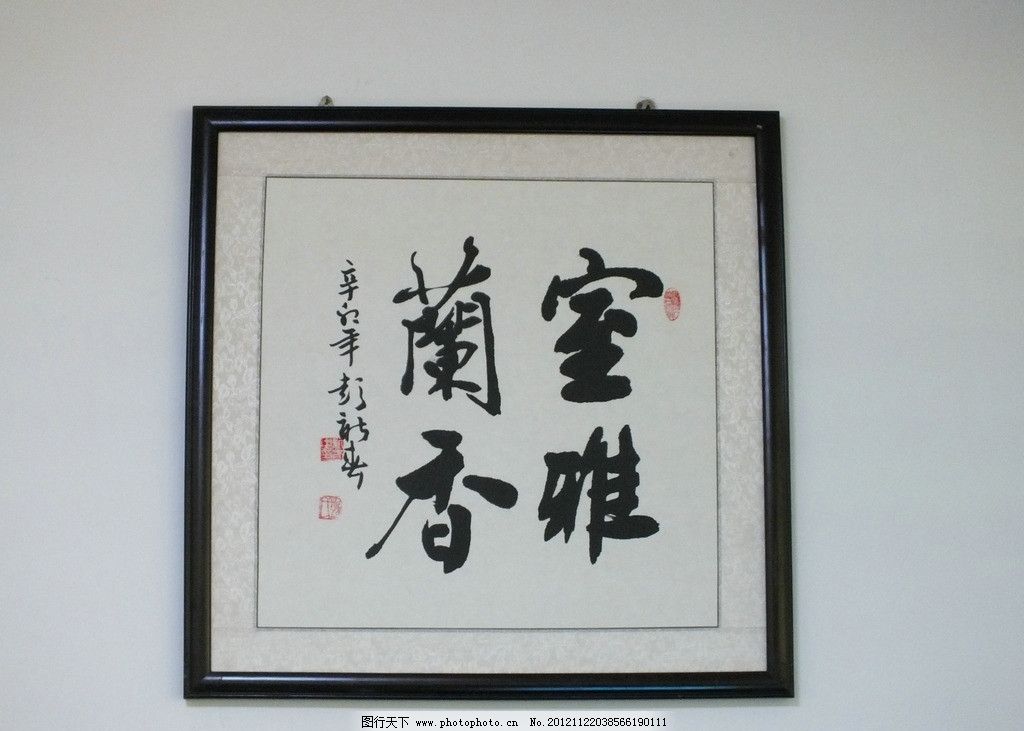 室雅
蘭香
辛卯年彭新春
图行天下 www.photophoto.cn No.20121122038566190111